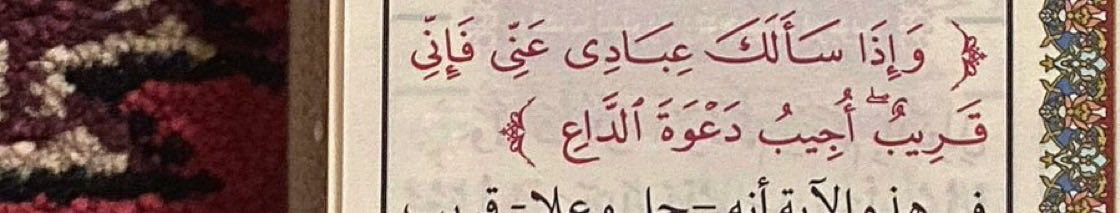 ﴿ وَإِذَا سَأَلَكَ عِبَادِى عَنِّى فَإِنِّى
قَرِيبٌ ۖ أُجِيبُ دَعْوَةَ ٱلدَّاعِ ﴾
في هذه الآية أنه – جل وعلا – قريب